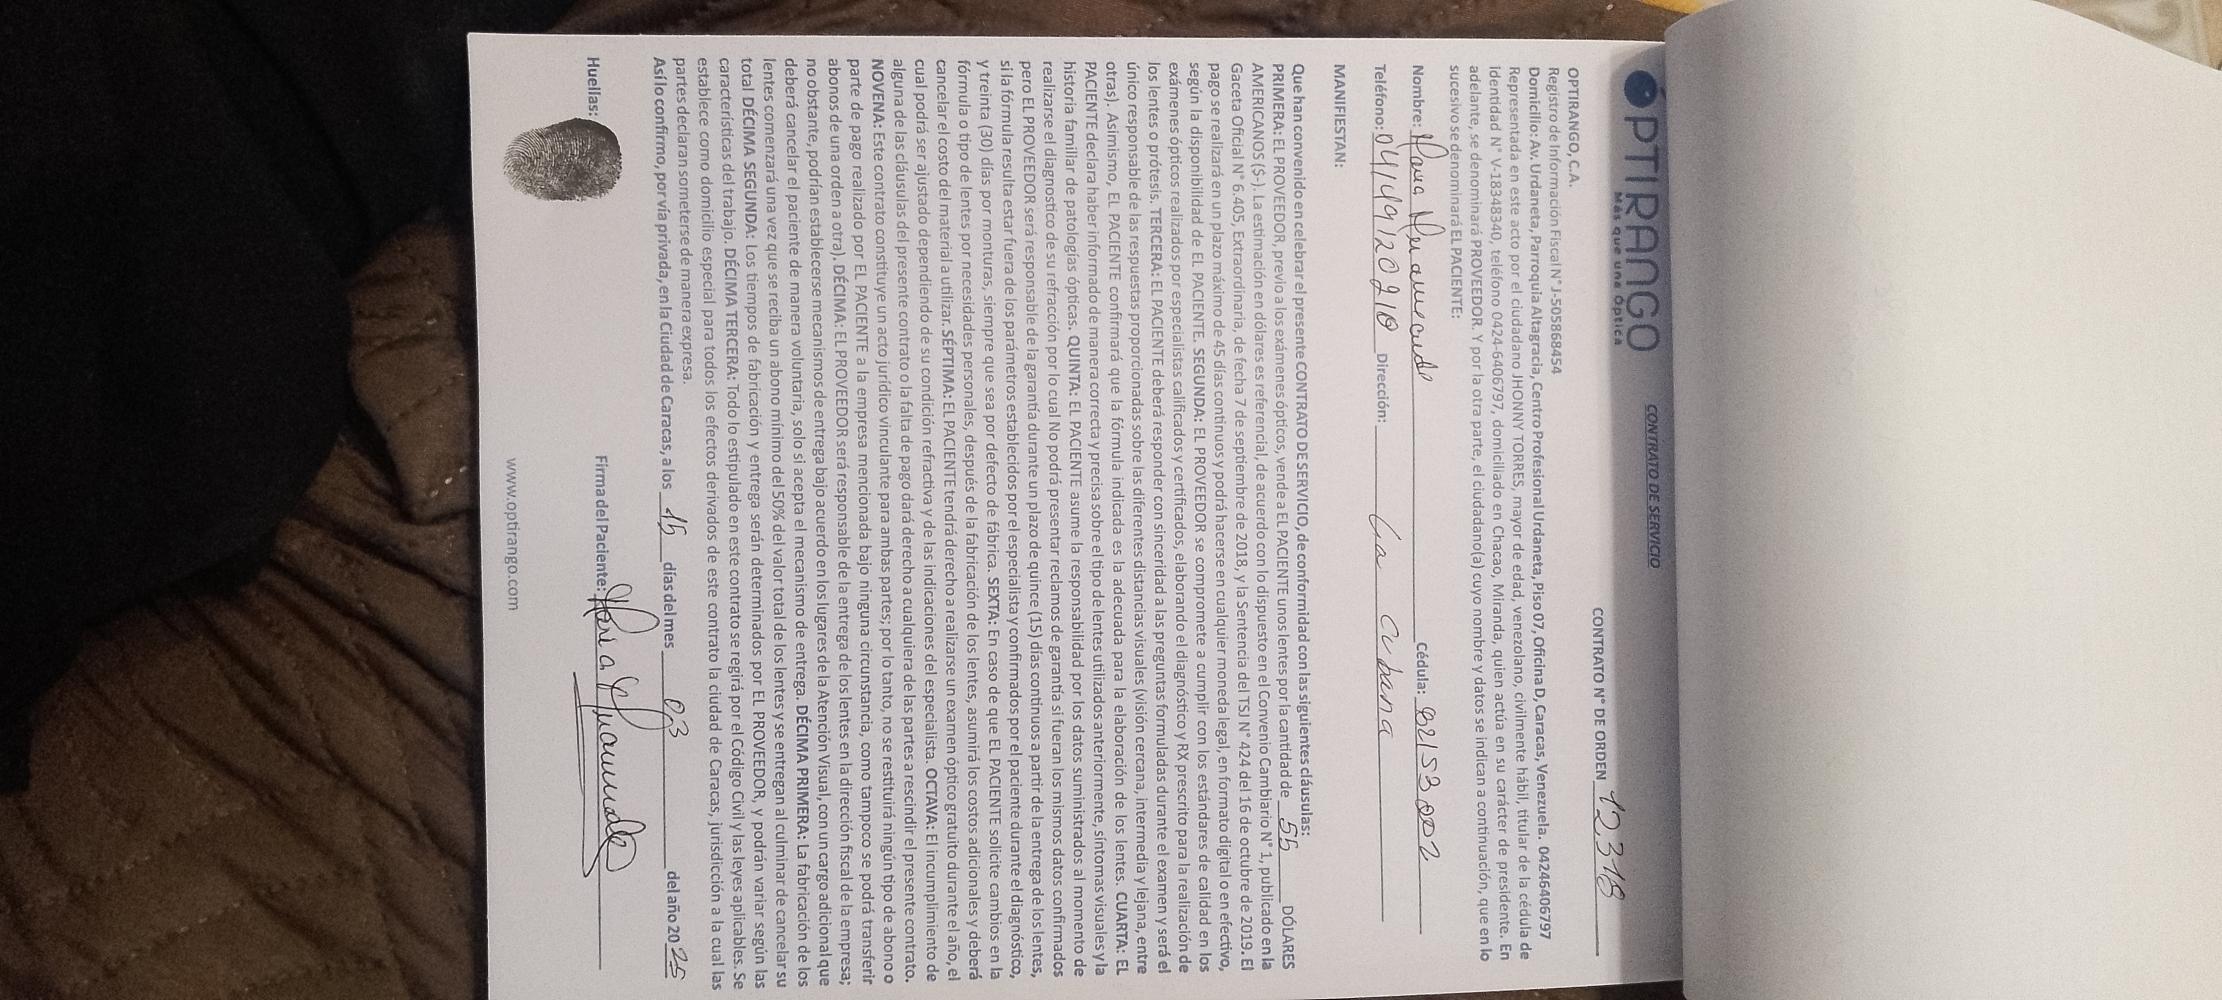 OPTIRANGO
Más que una Óptica
CONTRATO DE SERVICIO
CONTRATO N° DE ORDEN 12.318
OPTIRANGO, C.A.
Registro de Información Fiscal N° J-505868454
Domicilio: Av. Urdaneta, Parroquia Altagracia, Centro Profesional Urdaneta, Piso 07, Oficina D, Caracas, Venezuela. 04246406797
Representada en este acto por el ciudadano JHONNY TORRES, mayor de edad, venezolano, civilmente hábil, titular de la cédula de
identidad N° V-18348340, teléfono 0424-6406797, domiciliado en Chacao, Miranda, quien actúa en su carácter de presidente. En
adelante, se denominará PROVEEDOR. Y por la otra parte, el ciudadano(a) cuyo nombre y datos se indican a continuación, que en lo
sucesivo se denominará EL PACIENTE:
Nombre: Cédula: 82153002
Teléfono: 04149120210 Dirección: La cubana
MANIFIESTAN:
Que han convenido en celebrar el presente CONTRATO DE SERVICIO, de conformidad con las siguientes cláusulas:
PRIMERA: EL PROVEEDOR, previo a los exámenes ópticos, vende a EL PACIENTE unos lentes por la cantidad de 55 DÓLARES
AMERICANOS ($-). La estimación en dólares es referencial, de acuerdo con lo dispuesto en el Convenio Cambiario N° 1, publicado en la
Gaceta Oficial N° 6.405, Extraordinaria, de fecha 7 de septiembre de 2018, y la Sentencia del TSJ N° 424 del 16 de octubre de 2019. El
pago se realizará en un plazo máximo de 45 días continuos y podrá hacerse en cualquier moneda legal, en formato digital o en efectivo,
según la disponibilidad de EL PACIENTE. SEGUNDA: EL PROVEEDOR se compromete a cumplir con los estándares de calidad en los
exámenes ópticos realizados por especialistas calificados y certificados, elaborando el diagnóstico y RX prescrito para la realización de
los lentes o prótesis. TERCERA: EL PACIENTE deberá responder con sinceridad a las preguntas formuladas durante el examen y será el
único responsable de las respuestas proporcionadas sobre las diferentes distancias visuales (visión cercana, intermedia y lejana, entre
otras). Asimismo, EL PACIENTE confirmará que la fórmula indicada es la adecuada para la elaboración de los lentes. CUARTA: EL
PACIENTE declara haber informado de manera correcta y precisa sobre el tipo de lentes utilizados anteriormente, síntomas visuales y la
historia familiar de patologías ópticas. QUINTA: EL PACIENTE asume la responsabilidad por los datos suministrados al momento de
realizarse el diagnostico de su refracción por lo cual No podrá presentar reclamos de garantía si fueran los mismos datos confirmados
pero EL PROVEEDOR será responsable de la garantía durante un plazo de quince (15) días continuos a partir de la entrega de los lentes,
si la fórmula resulta estar fuera de los parámetros establecidos por el especialista y confirmados por el paciente durante el diagnóstico,
y treinta (30) días por monturas, siempre que sea por defecto de fábrica. SEXTA: En caso de que EL PACIENTE solicite cambios en la
fórmula o tipo de lentes por necesidades personales, después de la fabricación de los lentes, asumirá los costos adicionales y deberá
cancelar el costo del material a utilizar. SÉPTIMA: EL PACIENTE tendrá derecho a realizarse un examen óptico gratuito durante el año, el
cual podrá ser ajustado dependiendo de su condición refractiva y de las indicaciones del especialista. OCTAVA: El incumplimiento de
alguna de las cláusulas del presente contrato o la falta de pago dará derecho a cualquiera de las partes a rescindir el presente contrato.
NOVENA: Este contrato constituye un acto jurídico vinculante para ambas partes; por lo tanto, no se restituirá ningún tipo de abono o
parte de pago realizado por EL PACIENTE a la empresa mencionada bajo ninguna circunstancia, como tampoco se podrá transferir
abonos de una orden a otra). DÉCIMA: EL PROVEEDOR será responsable de la entrega de los lentes en la dirección fiscal de la empresa;
no obstante, podrían establecerse mecanismos de entrega bajo acuerdo en los lugares de la Atención Visual, con un cargo adicional que
deberá cancelar el paciente de manera voluntaria, solo si acepta el mecanismo de entrega. DÉCIMA PRIMERA: La fabricación de los
lentes comenzará una vez que se reciba un abono mínimo del 50% del valor total de los lentes y se entregan al culminar de cancelar su
total DÉCIMA SEGUNDA: Los tiempos de fabricación y entrega serán determinados por EL PROVEEDOR, y podrán variar según las
características del trabajo. DÉCIMA TERCERA: Todo lo estipulado en este contrato se regirá por el Código Civil y las leyes aplicables. Se
establece como domicilio especial para todos los efectos derivados de este contrato la ciudad de Caracas, jurisdicción a la cual las
partes declaran someterse de manera expresa.
Así lo confirmo, por vía privada, en la Ciudad de Caracas, a los 15 días del mes 03 del año 2025
Huellas: Firma del Paciente:
www.optirango.com